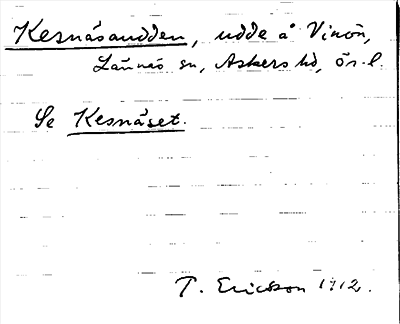 Kesnäsudden, udde å Vinön,
Lännäs sn, Askers hd, Ör. l.
Se Kesnäset.
T. Ericsson 1912.